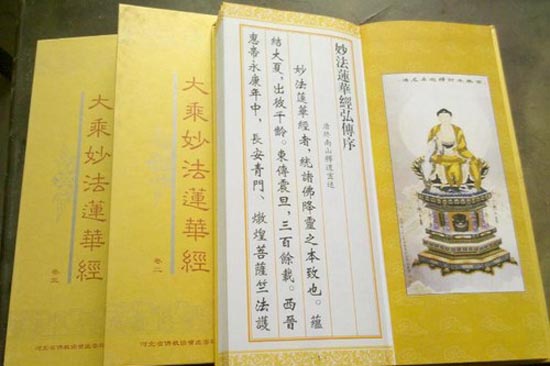 大乘妙法蓮華經
卷三
河北省佛教協會
大乘妙法蓮華經
卷二
河北省佛教協會
妙法蓮華經弘傳序
唐終南山釋道宣述
妙法蓮華經者，統諸佛降靈之本致也。蘊
結大夏，出彼千齡。東傳震旦，三百餘載。西晉
惠帝永康年中，長安青門、燉煌菩薩竺法護